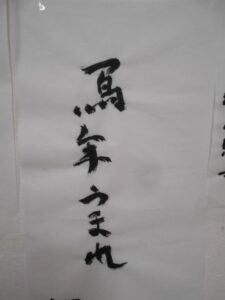 馬年うまれ